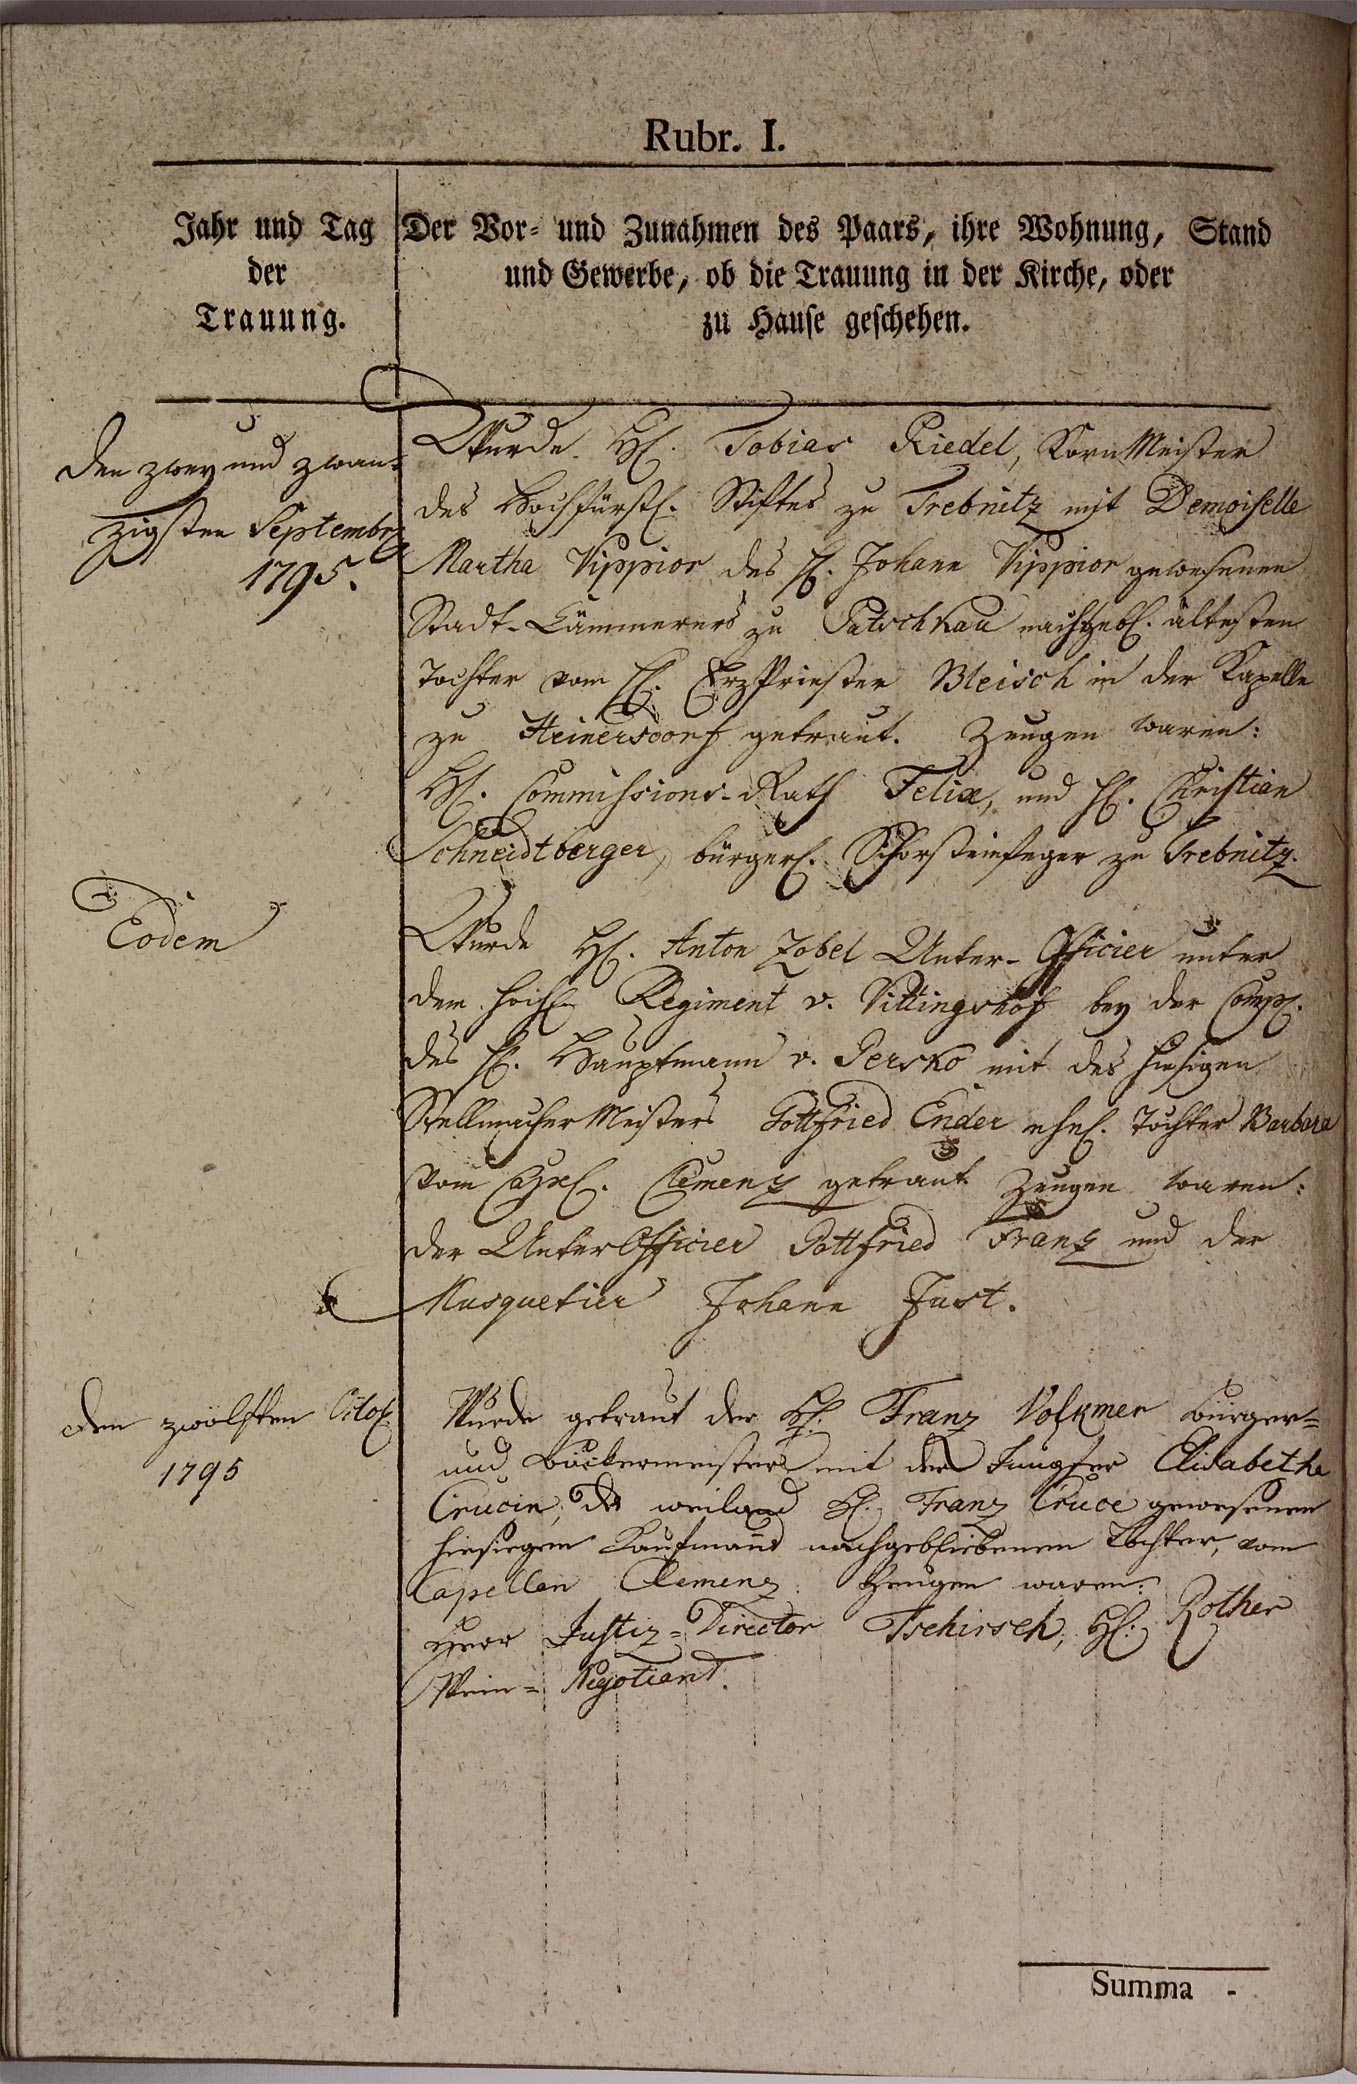 Rubr. I.
Jahr und Tag
der
Trauung.
Der Vor- und Zunahmen des Paars, ihre Wohnung, Stand
und Gewerbe, ob die Trauung in der Kirche, oder
zu Hause geschehen.
Den zwey und zwan-
zigsten Septembr
1795.
Wurde H. Tobias Riedel, Korn Meister
des Hochfürstl. Stiftes zu Trebnitz mit Demoiselle
Martha Vippior des H. Johann Vippior gewesenen
Stadt-Cämmerers zu Patschkau nachgebl. ältesten
Tochter vom H. ErzPriester Bleisch in der Kapelle
zu Heinersdorf getraut. Zeugen waren:
H. Commissions-Rath Felix, und H. Christian
Schneidtberger, bürgerl. Schorsteinfeger zu Trebnitz.
Eodem
Wurde H. Anton Zobel Unter-Officier unter
dem Regiment v. Vittingshof bey der Comp.
des H. Hauptmann v. Gersko mit des hiesigen
Stellmacher Meisters Gottfried Ender ehel. Tochter Barbara
vom Clemenz getraut Zeugen waren:
der UnterOfficier Gottfried Franz und der
Musquetier Johann Just.
Den zwölften
1795
Wurde getraut der H. Franz Volkmer Bürger-
und Böckermeister mit der Jungfer Elisabetha
Crucin, des weiland H. Franz Cruce gewesenen
hiesiegen Kaufmann nachgebliebenen Tochter, vom
Capellan Clemenz. Zeugen waren:
Herr Justiz-Director Tschirsch, H. Rother
Wein-Negotiant.
Summa -